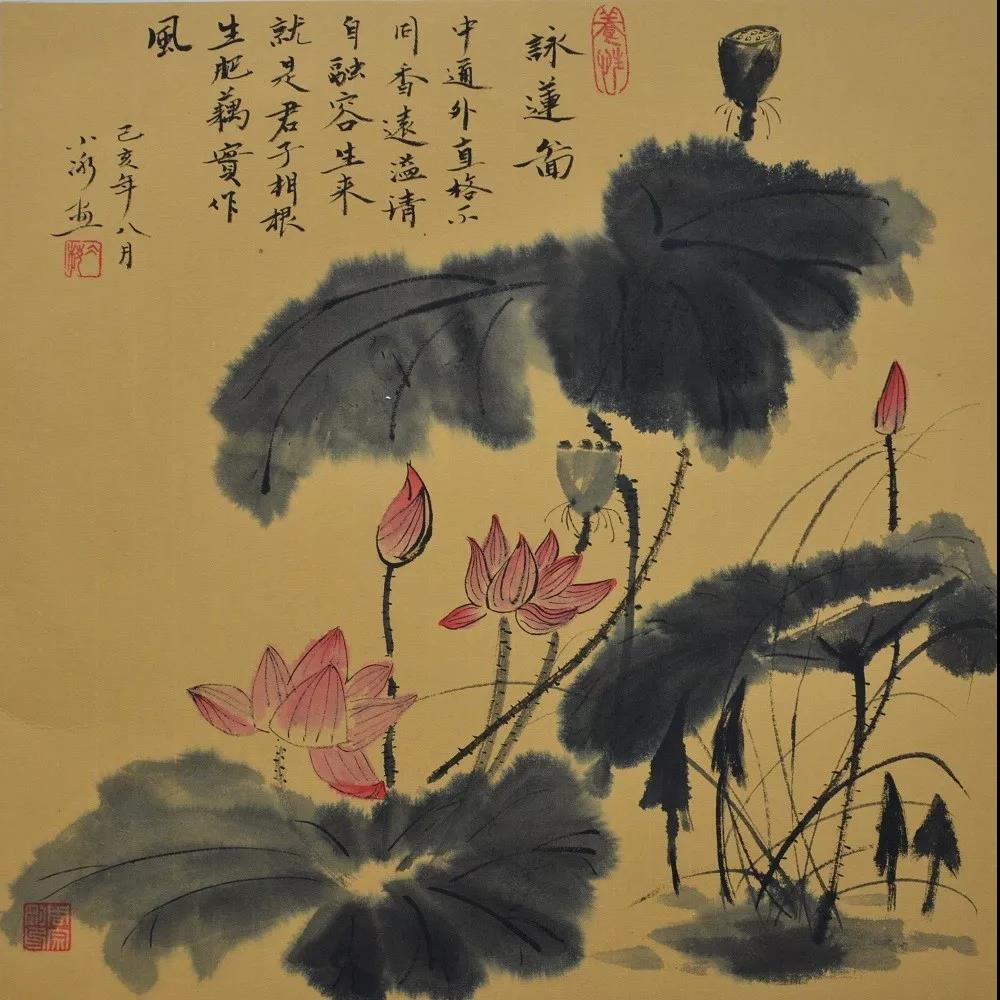 養性
詠蓮圖
中通外直格不
同香遠溢清
自融容生来
就是君子相根
生肥藕實作
風
己亥年八月
小冰画